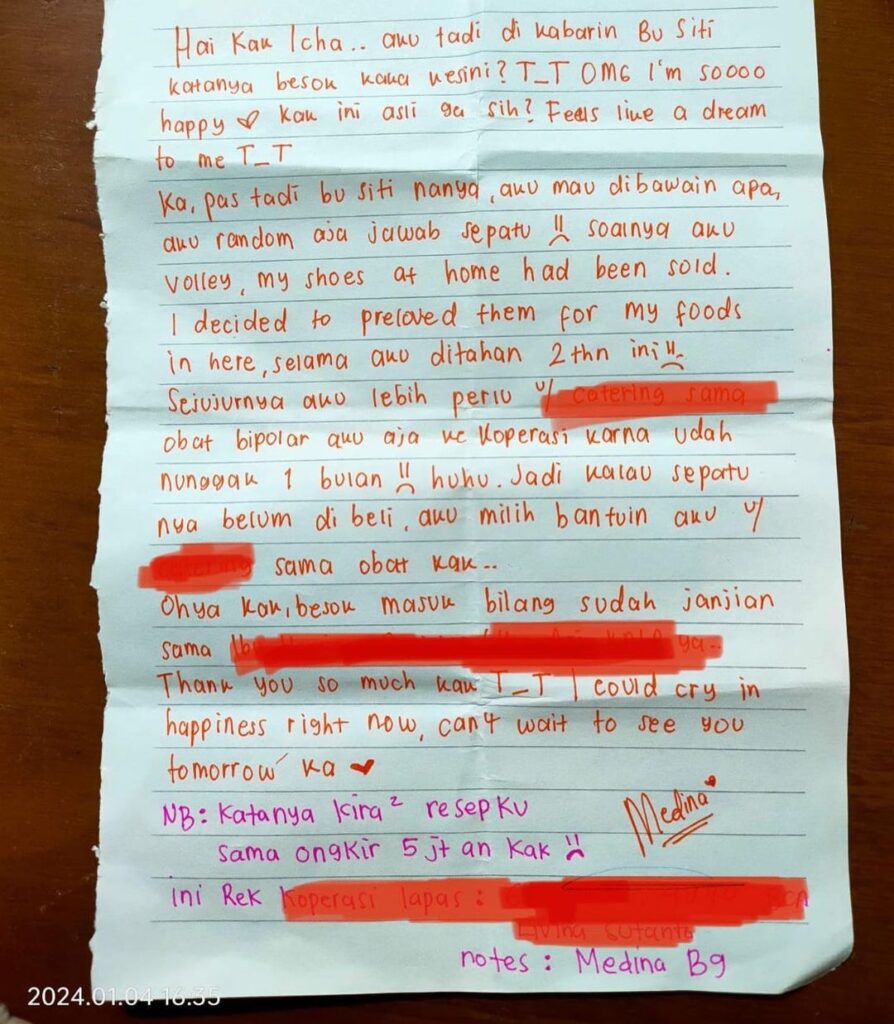 Hai Kak Icha.. aku tadi di kabarin Bu Siti
katanya besok kaka kesini? T_T OMG I'm soooo
happy ♡ kak ini asli ga sih? Feels like a dream
to me T_T
Ka, pas tadi bu siti nanya, aku mau dibawain apa,
aku random aja jawab sepatu !! :( soalnya aku
volley, my shoes at home had been sold.
I decided to preloved them for my foods
in here, selama aku ditahan 2thn ini !! :(
Sejujurnya aku lebih perlu u/ catering sama
obat bipolar aku aja ke koperasi karna udah
nunggak 1 bulan !! :( huhu. Jadi kalau sepatu
nya belum di beli, aku milih bantuin aku u/
sama obat kak..
Ohya kak, besok masuk bilang sudah janjian
sama ya..
Thank you so much kak T_T I could cry in
happiness right now, can't wait to see you
tomorrow ka ♥
NB: Katanya kira² resepku
sama ongkir 5 jt an kak !! :(
Medina
ini Rek koperasi lapas :
notes : Medina B9
2024.01.04 16.35